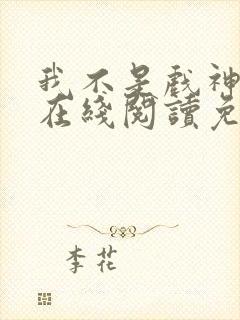 我不是戲神
在綫閱讀免
李花